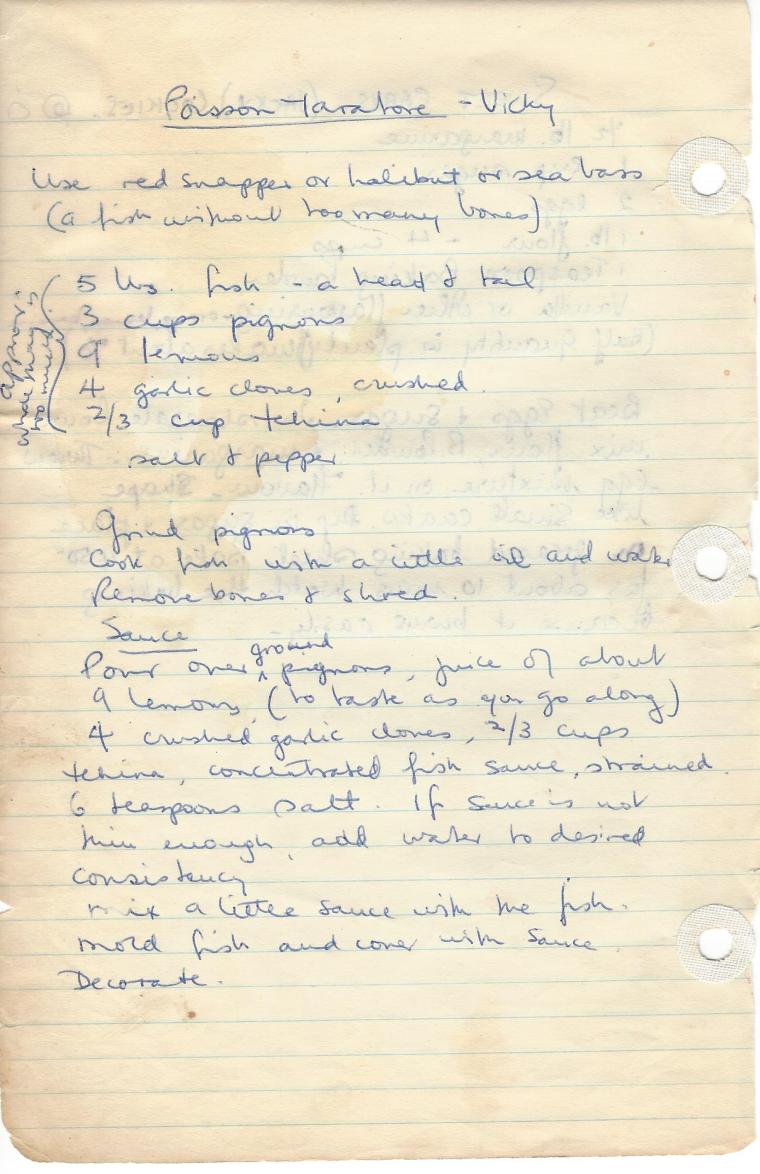 Poisson Taratore - Vicky
Use red snapper or halibut or sea bass
(a fish without too many bones)
approx.
whole may
be too much
5 lbs. fish - a head & tail
3 cups pignons
9 lemons
4 garlic cloves, crushed.
2/3 cup tehina
salt & pepper
Grind pignons
Cook fish with a little oil and water
Remove bones & shred.
Sauce
Pour over ground pignons, juice of about
9 lemons, (to taste as you go along)
4 crushed garlic cloves, 2/3 cups
tehina, concentrated fish sauce, strained.
6 teaspoons salt. If sauce is not
thin enough, add water to desired
consistency
mix a little sauce with the fish.
mold fish and cover with sauce.
Decorate.